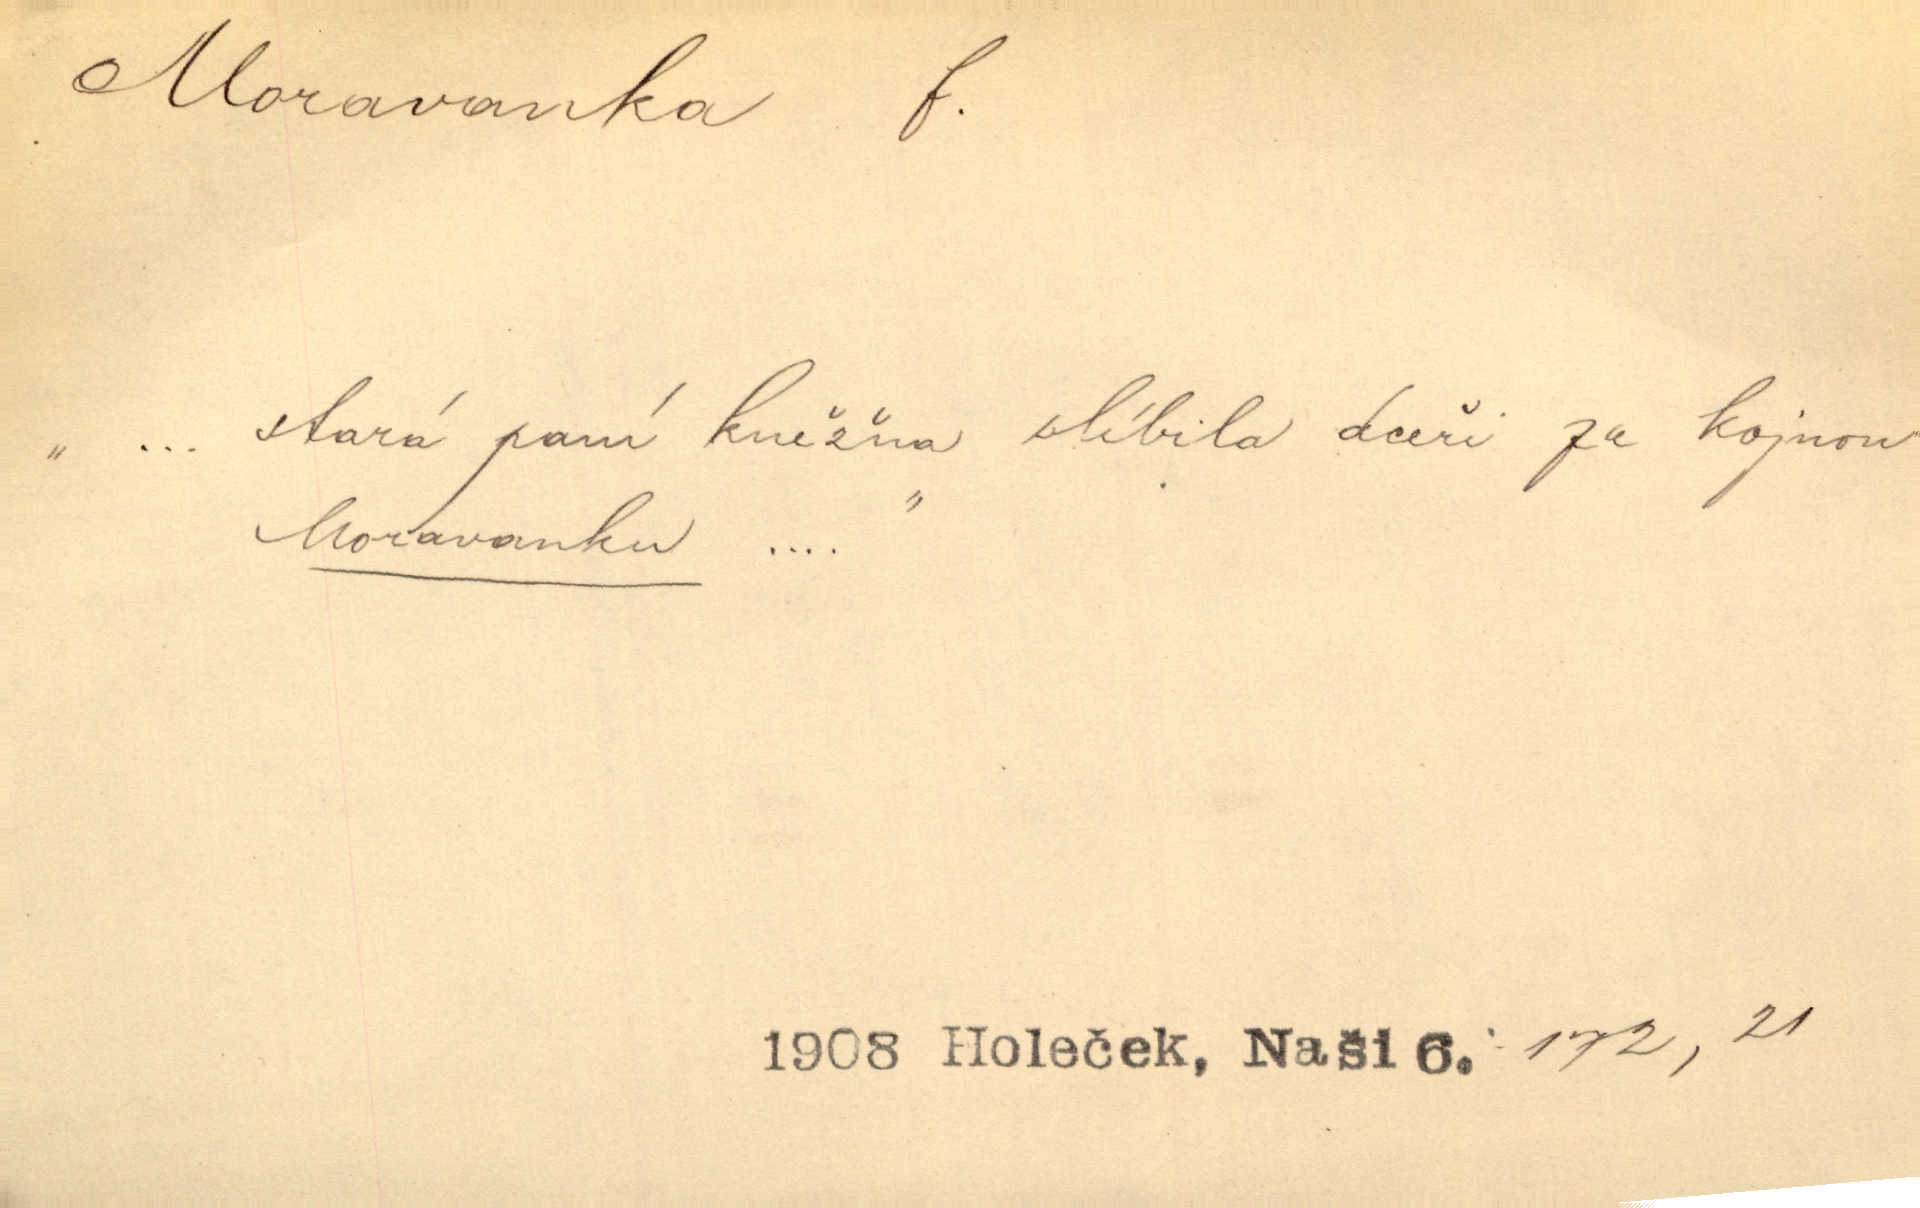 Moravanka f.
„ ... stará paní kněžna slíbila dceři za kojnou
Moravanku .... "
1908 Holeček, Naši 6. 172, 21